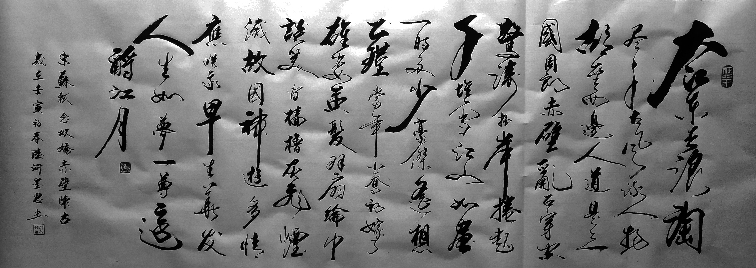 大江東去浪淘
盡千古風流人物
故壘西邊人道是三
國周郎赤壁亂石穿空
驚濤拍岸捲起
千堆雪江山如畫
一時多少豪傑遙想
公瑾當年小喬初嫁了
雄姿英發羽扇綸巾
談笑間檣櫓灰飛煙
滅故國神遊多情
應笑我早生華髮
人生如夢一尊還
酹江月
宋蘇軾念奴嬌赤壁懷古
歲在壬寅初春